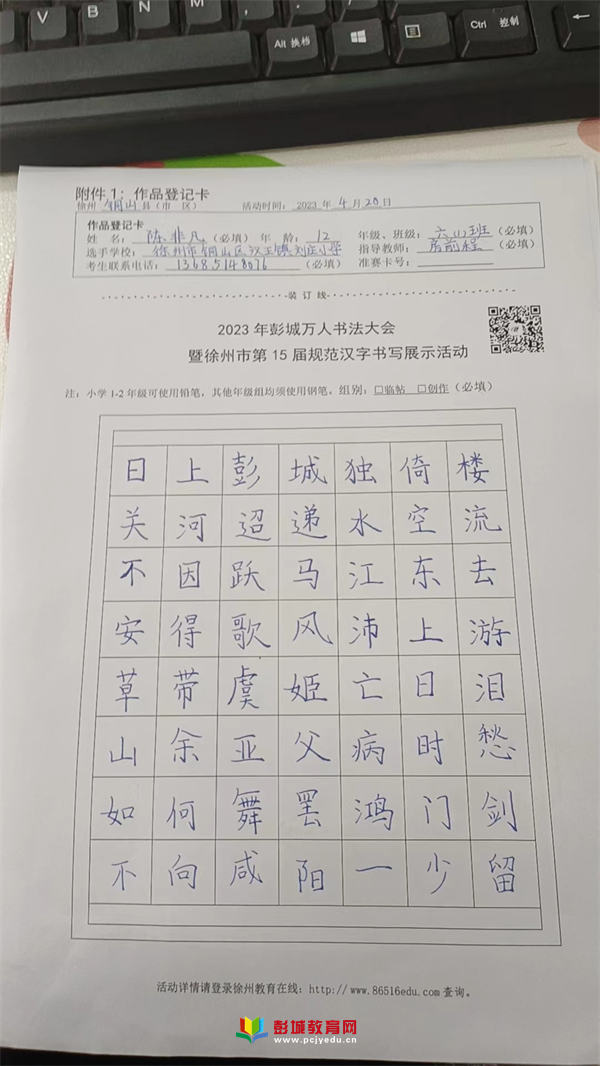 Alt 换档
Ctrl 控制
附件1：作品登记卡
徐州 铜山 县（市 区） 活动时间：2023 年 4 月 20 日
作品登记卡
姓 名：陈非凡（必填）年 龄：12 年级、班级：六(1)班（必填）
选手学校：徐州市铜山区汉王镇刘庄小学 指导教师：房前程（必填）
考生联系电话：13685148076（必填） 准赛卡号：
装 订 线
2023 年彭城万人书法大会
暨徐州市第 15 届规范汉字书写展示活动
注：小学 1-2 年级可使用铅笔，其他年级组均须使用钢笔。组别：□临帖 □创作（必填）
日上彭城独倚楼
关河迢递水空流
不因跃马江东去
安得歌风沛上游
草带虞姬亡日泪
山余亚父病时愁
如何舞罢鸿门剑
不向咸阳一少留
活动详情请登录徐州教育在线：http://www.86516edu.com 查询。
彭城教育网
www.pcjyedu.cn